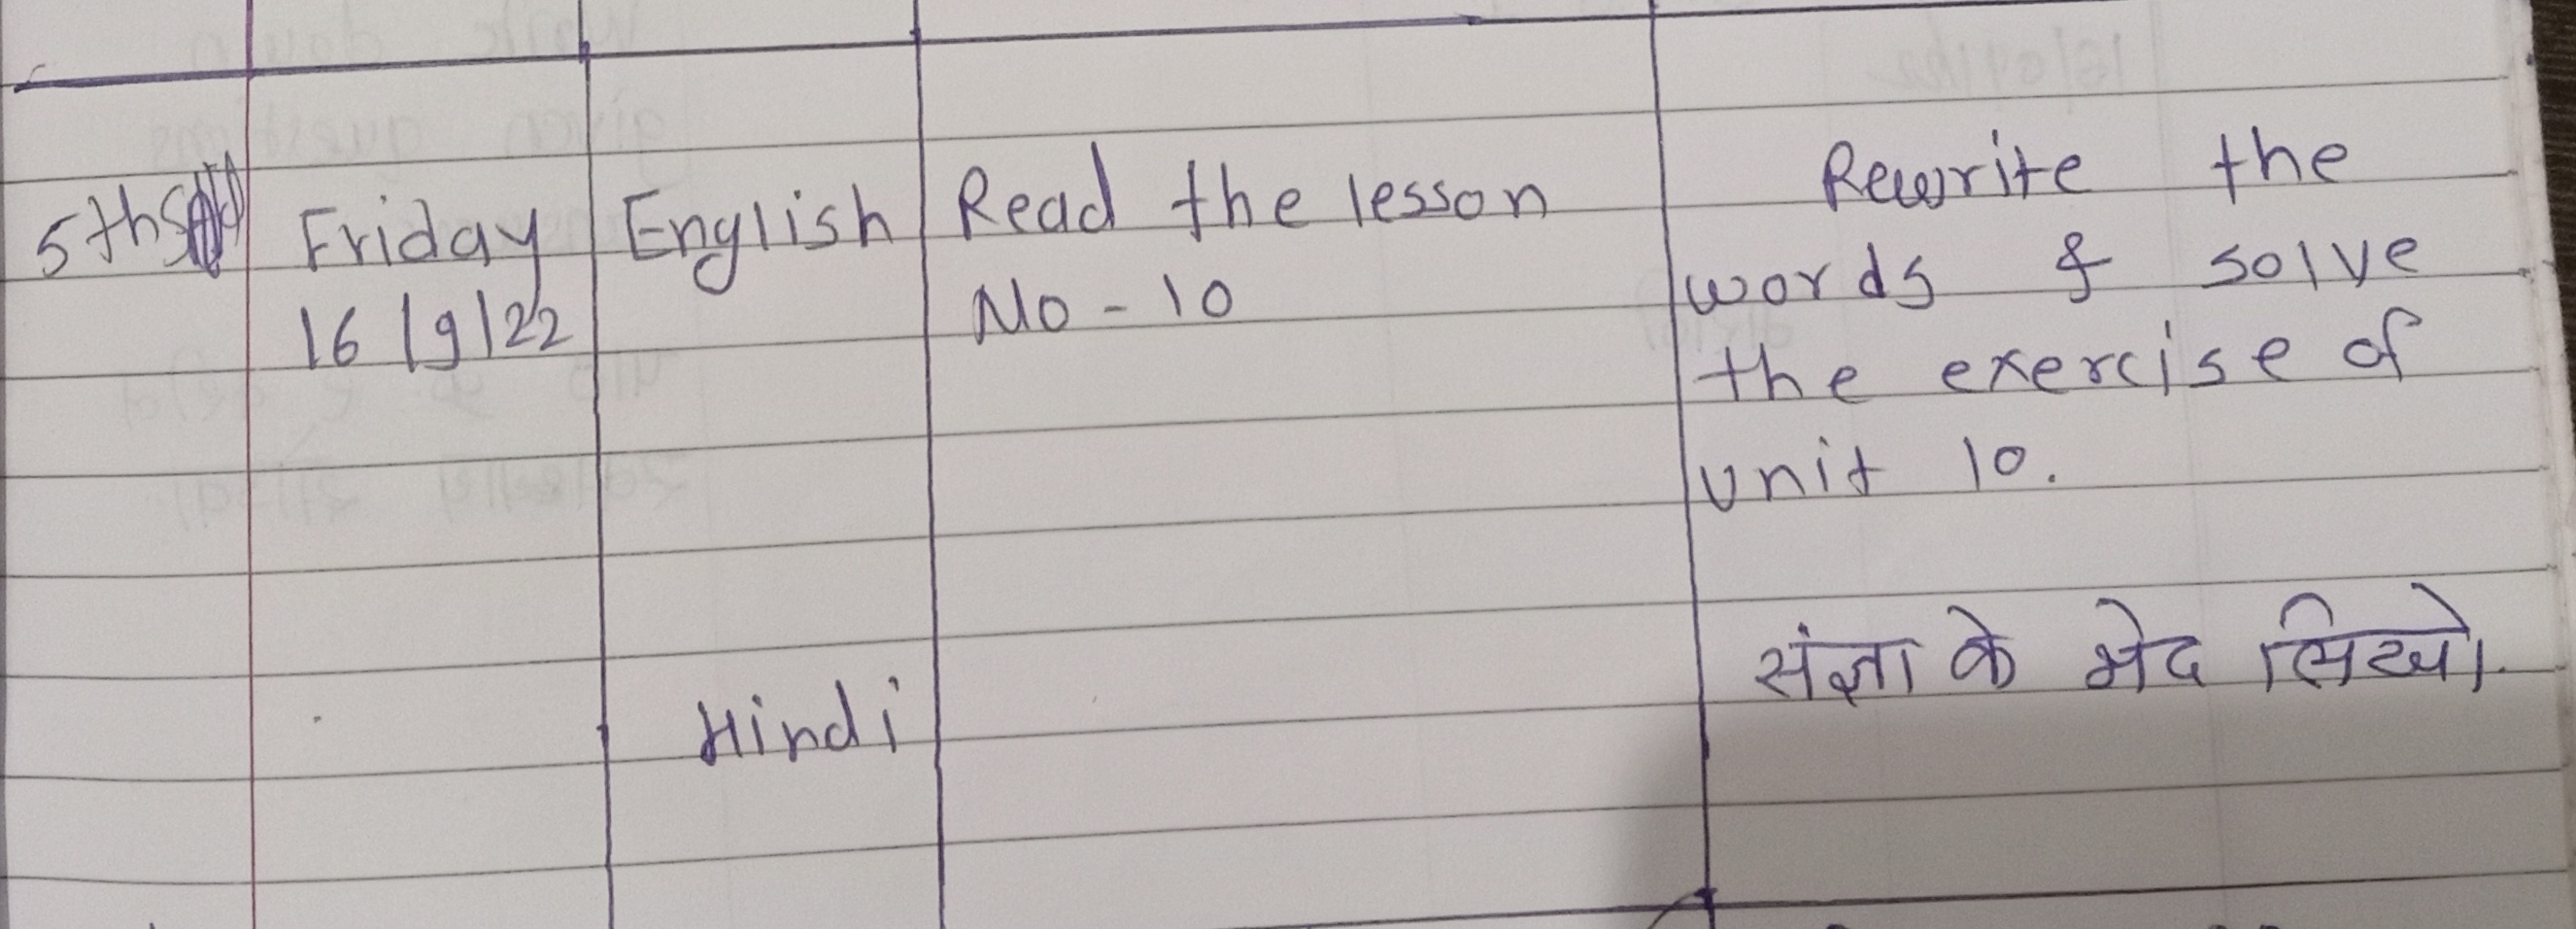 5th
Friday
16/9/22
English
Read the lesson
No - 10
Rewrite the
words & solve
the exercise of
unit 10.
Hindi
संज्ञा के भेद लिखो।